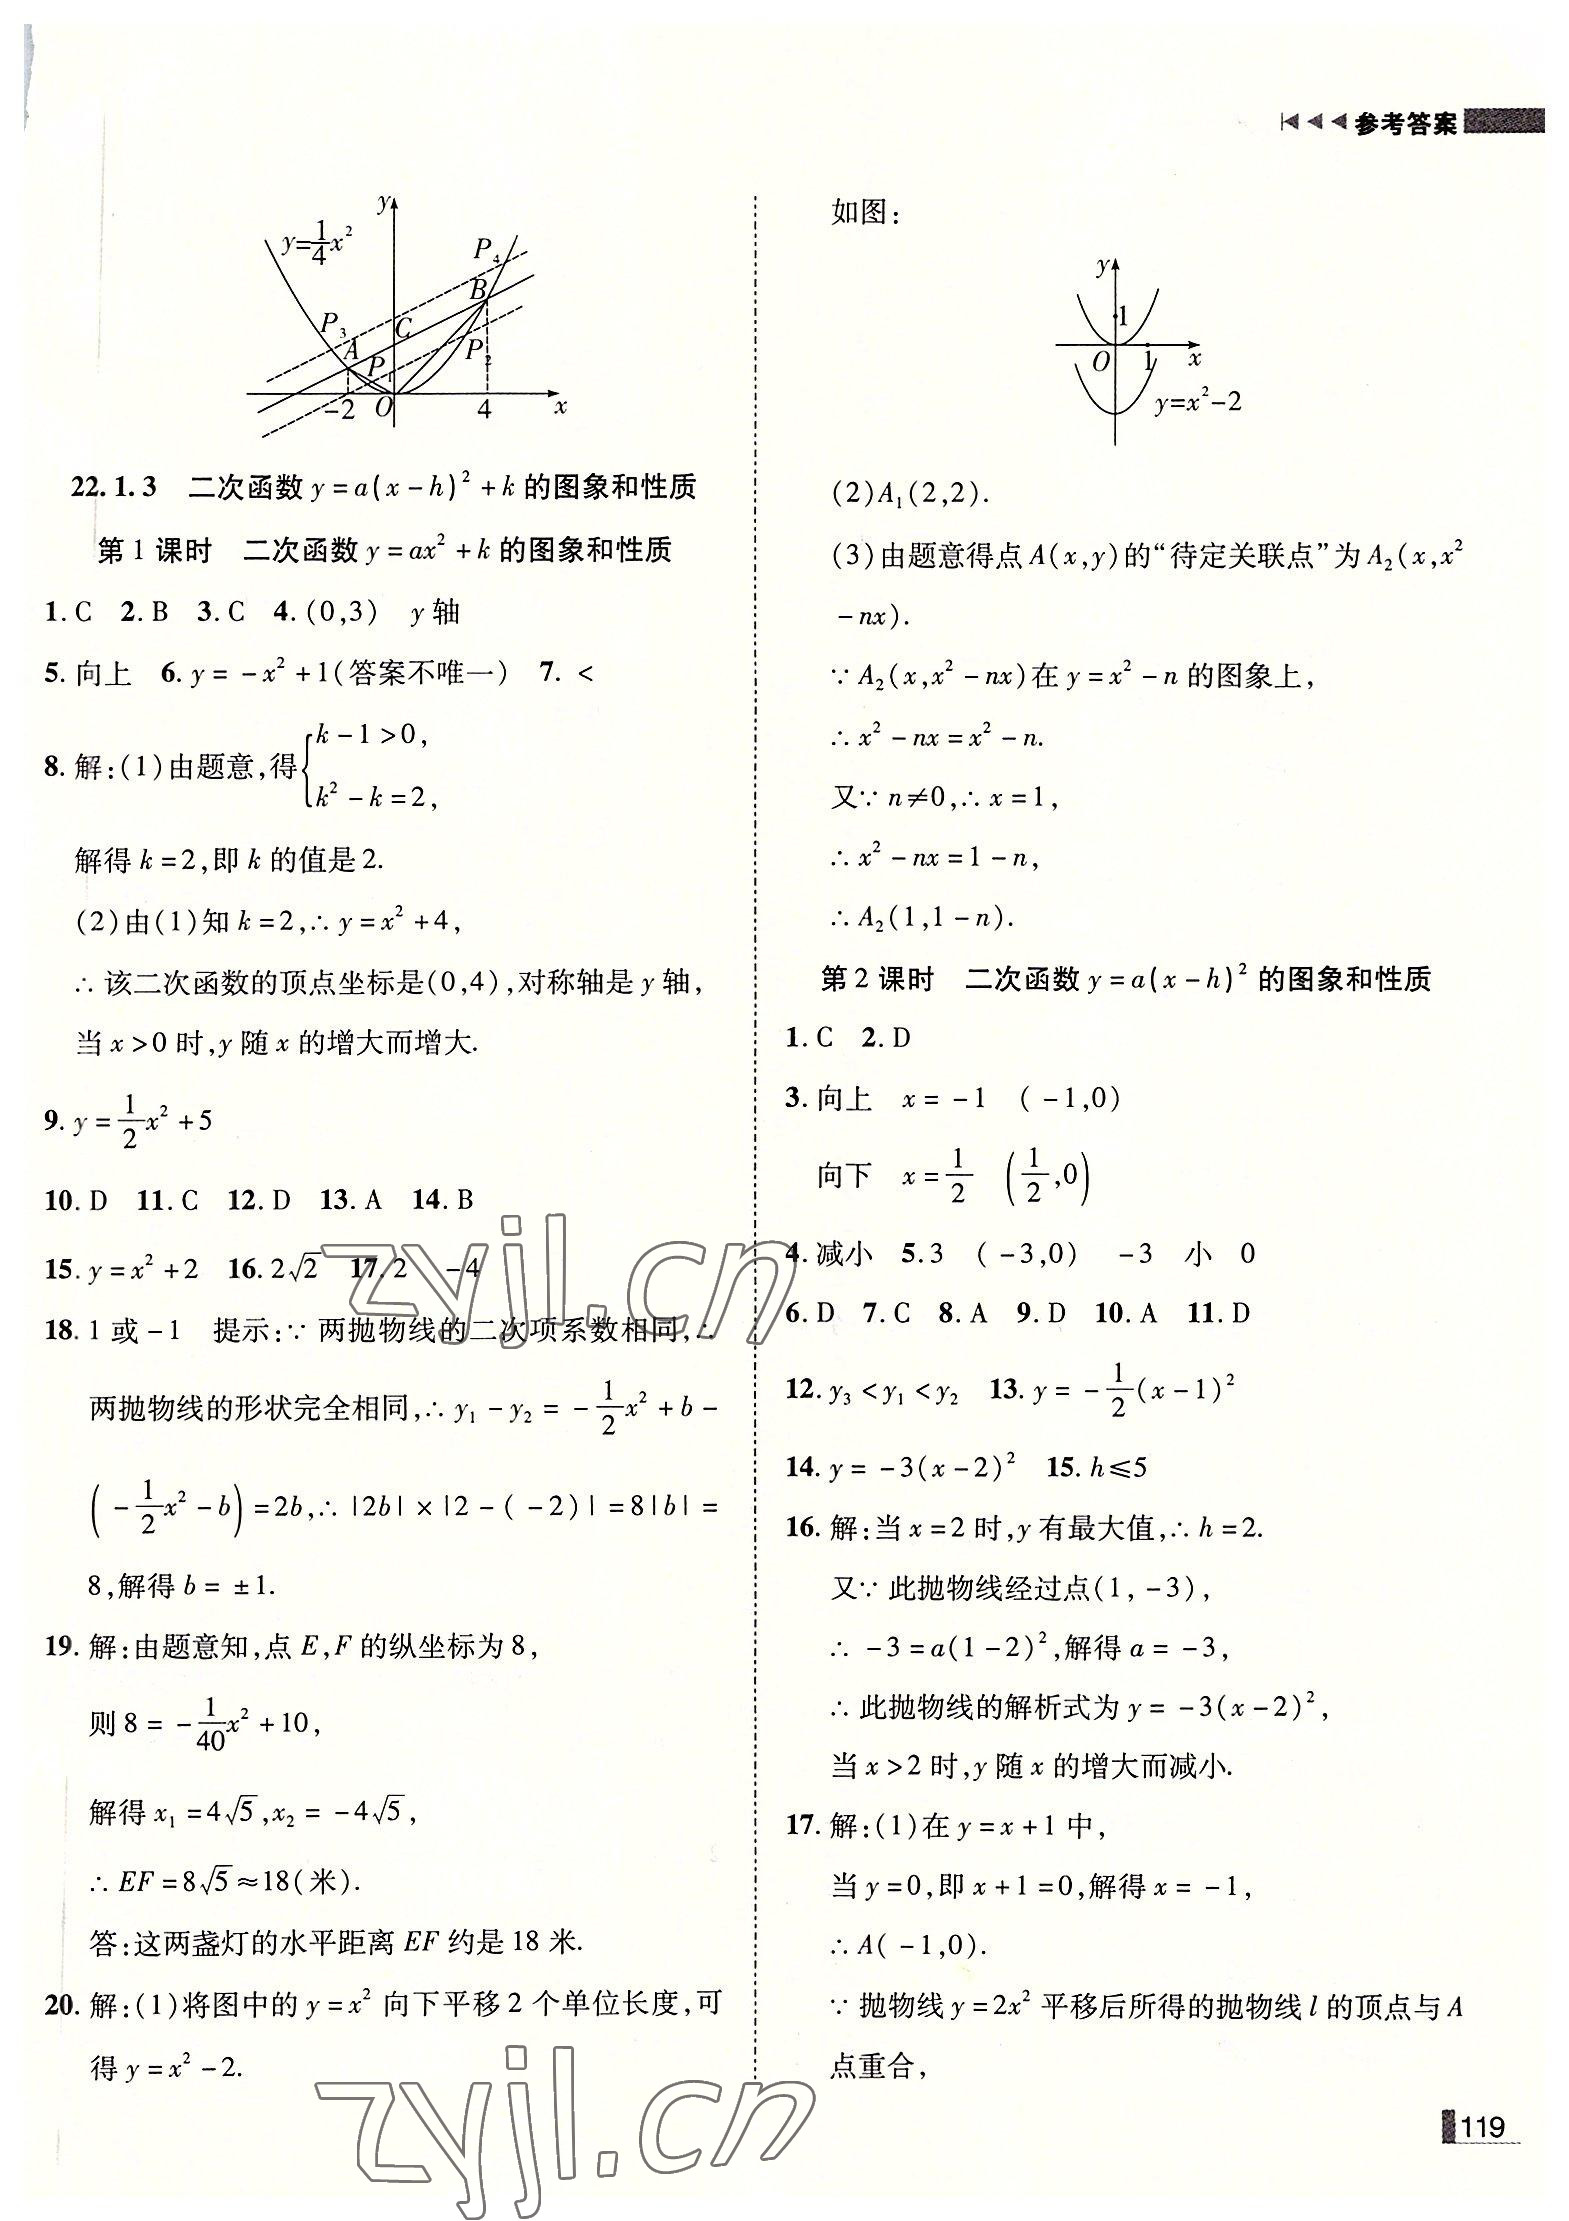 参考答案
y
y=1/4x²
P₄
B
P₃
C
A
P₁
P₂
-2 O 4 x
22.1.3 二次函数 y=a(x-h)²+k 的图象和性质
第1课时 二次函数 y=ax²+k 的图象和性质
1.C 2.B 3.C 4.(0,3) y轴
5.向上 6.y=-x²+1(答案不唯一) 7.<
8.解:(1)由题意,得{k-1>0,
k²-k=2,
解得 k=2,即 k 的值是2.
(2)由(1)知 k=2,∴y=x²+4,
∴该二次函数的顶点坐标是(0,4),对称轴是 y 轴,
当 x>0 时,y 随 x 的增大而增大.
9.y=1/2x²+5
10.D 11.C 12.D 13.A 14.B
15.y=x²+2 16.2√2 17.2 -4
18.1或-1 提示:∵两抛物线的二次项系数相同,∴
两抛物线的形状完全相同,∴y₁-y₂=-1/2x²+b-
(-1/2x²-b)=2b,∴|2b|×|2-(-2)|=8|b|=
8,解得 b=±1.
19.解:由题意知,点 E,F 的纵坐标为8,
则8=-1/40x²+10,
解得 x₁=4√5,x₂=-4√5,
∴EF=8√5≈18(米).
答:这两盏灯的水平距离 EF 约是18米.
20.解:(1)将图中的 y=x² 向下平移2个单位长度,可
得 y=x²-2.
如图:
y
1
O 1 x
y=x²-2
(2)A₁(2,2).
(3)由题意得点 A(x,y)的“待定关联点”为 A₂(x,x²
-nx).
∵A₂(x,x²-nx)在 y=x²-n 的图象上,
∴x²-nx=x²-n.
又∵n≠0,∴x=1,
∴x²-nx=1-n,
∴A₂(1,1-n).
第2课时 二次函数 y=a(x-h)² 的图象和性质
1.C 2.D
3.向上 x=-1 (-1,0)
向下 x=1/2 (1/2,0)
4.减小 5.3 (-3,0) -3 小 0
6.D 7.C 8.A 9.D 10.A 11.D
12.y₃<y₁<y₂ 13.y=-1/2(x-1)²
14.y=-3(x-2)² 15.h≤5
16.解:当 x=2 时,y 有最大值,∴h=2.
又∵此抛物线经过点(1,-3),
∴-3=a(1-2)²,解得 a=-3,
∴此抛物线的解析式为 y=-3(x-2)²,
当 x>2 时,y 随 x 的增大而减小.
17.解:(1)在 y=x+1 中,
当 y=0,即 x+1=0,解得 x=-1,
∴A(-1,0).
∵抛物线 y=2x² 平移后所得的抛物线 l 的顶点与 A
点重合,
119
zyjl.cn
zyjl.cn